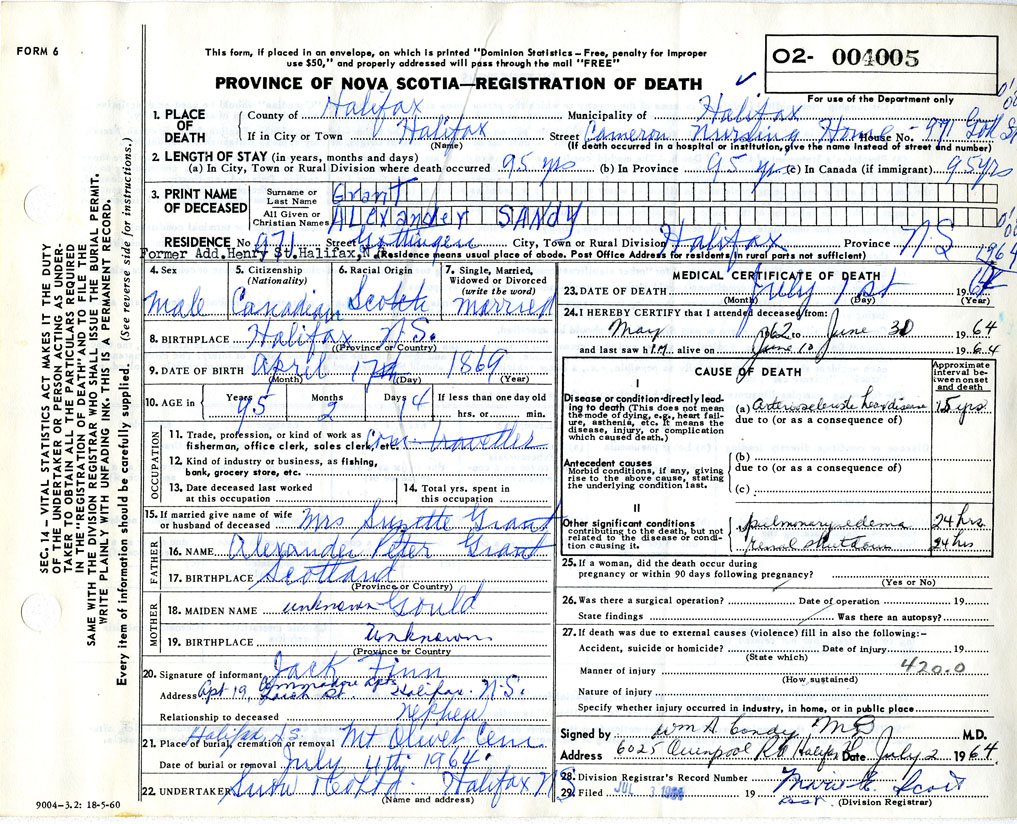 FORM 6
This form, if placed in an envelope, on which is printed "Dominion Statistics – Free, penalty for improper
use $50," and properly addressed will pass through the mail "FREE"
O2- 004005
PROVINCE OF NOVA SCOTIA—REGISTRATION OF DEATH
For use of the Department only
1. PLACE OF DEATH
County of Halifax Municipality of Halifax
If in City or Town Halifax Street Cameron Nursing Home House No. 971
(Name) (If death occurred in a hospital or institution, give the name instead of street and number)
2. LENGTH OF STAY (in years, months and days)
(a) In City, Town or Rural Division where death occurred 95 yrs (b) In Province 95 yr. (c) In Canada (if immigrant) 95 yrs
3. PRINT NAME OF DECEASED
Surname or Last Name Grant
All Given or Christian Names Alexander SANDY
RESIDENCE No 971 Street Gottingen City, Town or Rural Division Halifax Province N.S
Former Add. Henry St. Halifax, N. (Residence means usual place of abode. Post Office Address for residents in rural parts not sufficient) 1964
4. Sex male
5. Citizenship (Nationality) Canadian
6. Racial Origin Scotch
7. Single, Married, Widowed or Divorced (write the word) married
8. BIRTHPLACE Halifax N.S.
(Province or Country)
9. DATE OF BIRTH April 17th 1869
(Month) (Day) (Year)
10. AGE in Years 95 Months 2 Days 14 If less than one day old
hrs. or min.
OCCUPATION
11. Trade, profession, or kind of work as Com. traveller
fisherman, office clerk, sales clerk, etc.
12. Kind of industry or business, as fishing,
bank, grocery store, etc.
13. Date deceased last worked at this occupation
14. Total yrs. spent in this occupation
15. If married give name of wife or husband of deceased Mrs Suzette Grant
FATHER
16. NAME Alexander Peter Grant
17. BIRTHPLACE Scotland
(Province or Country)
MOTHER
18. MAIDEN NAME unknown Gould
19. BIRTHPLACE Unknown
(Province or Country)
20. Signature of informant Jack Finn
Address Apt 19, Commodore Apts Halifax. N.S.
Relationship to deceased nephew
21. Place of burial, cremation or removal Halifax N.S. Mt Olivet Cem
Date of burial or removal July 4th 1964
22. UNDERTAKER Snow & Co Ltd. Halifax NS
(Name and address)
MEDICAL CERTIFICATE OF DEATH
23. DATE OF DEATH July 1st 1964
(Month) (Day) (Year)
24. I HEREBY CERTIFY that I attended deceased from:
May 1962 to June 30 1964
and last saw him alive on June 10 1964
CAUSE OF DEATH
Approximate interval between onset and death
I
Disease or condition directly leading to death (This does not mean the mode of dying, e.g., heart failure, asthenia, etc. It means the disease, injury, or complication which caused death.)
(a) Arteriosclerotic heart disease 15 yrs
due to (or as a consequence of)
Antecedent causes
Morbid conditions, if any, giving rise to the above cause, stating the underlying condition last.
(b)
due to (or as a consequence of)
(c)
II
Other significant conditions contributing to the death, but not related to the disease or condition causing it.
pulmonary edema 24 hrs
renal shutdown 24 hrs
25. If a woman, did the death occur during
pregnancy or within 90 days following pregnancy?
(Yes or No)
26. Was there a surgical operation? Date of operation 19
State findings Was there an autopsy?
27. If death was due to external causes (violence) fill in also the following:–
Accident, suicide or homicide? Date of injury 19
(State which)
Manner of injury 420.0
(How sustained)
Nature of injury
Specify whether injury occurred in industry, in home, or in public place
Signed by Wm A Condy MD M.D.
Address 6025 Liverpool Halifax Date July 2 1964
28. Division Registrar's Record Number
29. Filed JUL 3 1964 19 Marie E. Scott
asst. (Division Registrar)
SEC. 14 – VITAL STATISTICS ACT MAKES IT THE DUTY
OF THE UNDERTAKER OR PERSON ACTING AS UNDER-
TAKER TO OBTAIN ALL THE PARTICULARS REQUIRED
IN THE "REGISTRATION OF DEATH" AND TO FILE THE
SAME WITH THE DIVISION REGISTRAR WHO SHALL ISSUE THE BURIAL PERMIT.
WRITE PLAINLY WITH UNFADING INK. THIS IS A PERMANENT RECORD.
Every item of information should be carefully supplied. (See reverse side for instructions.)
9004-3.2: 18-5-60